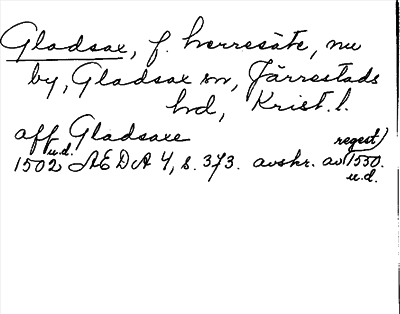 Gladsax, f. herresäte, nu
by, Gladsax sn, Järrestads
hd, Krist. l.
aff Gladsaxe
u.d. regest)
1502 ÆDA 4, s. 373. avskr. av 1550.
u.d.